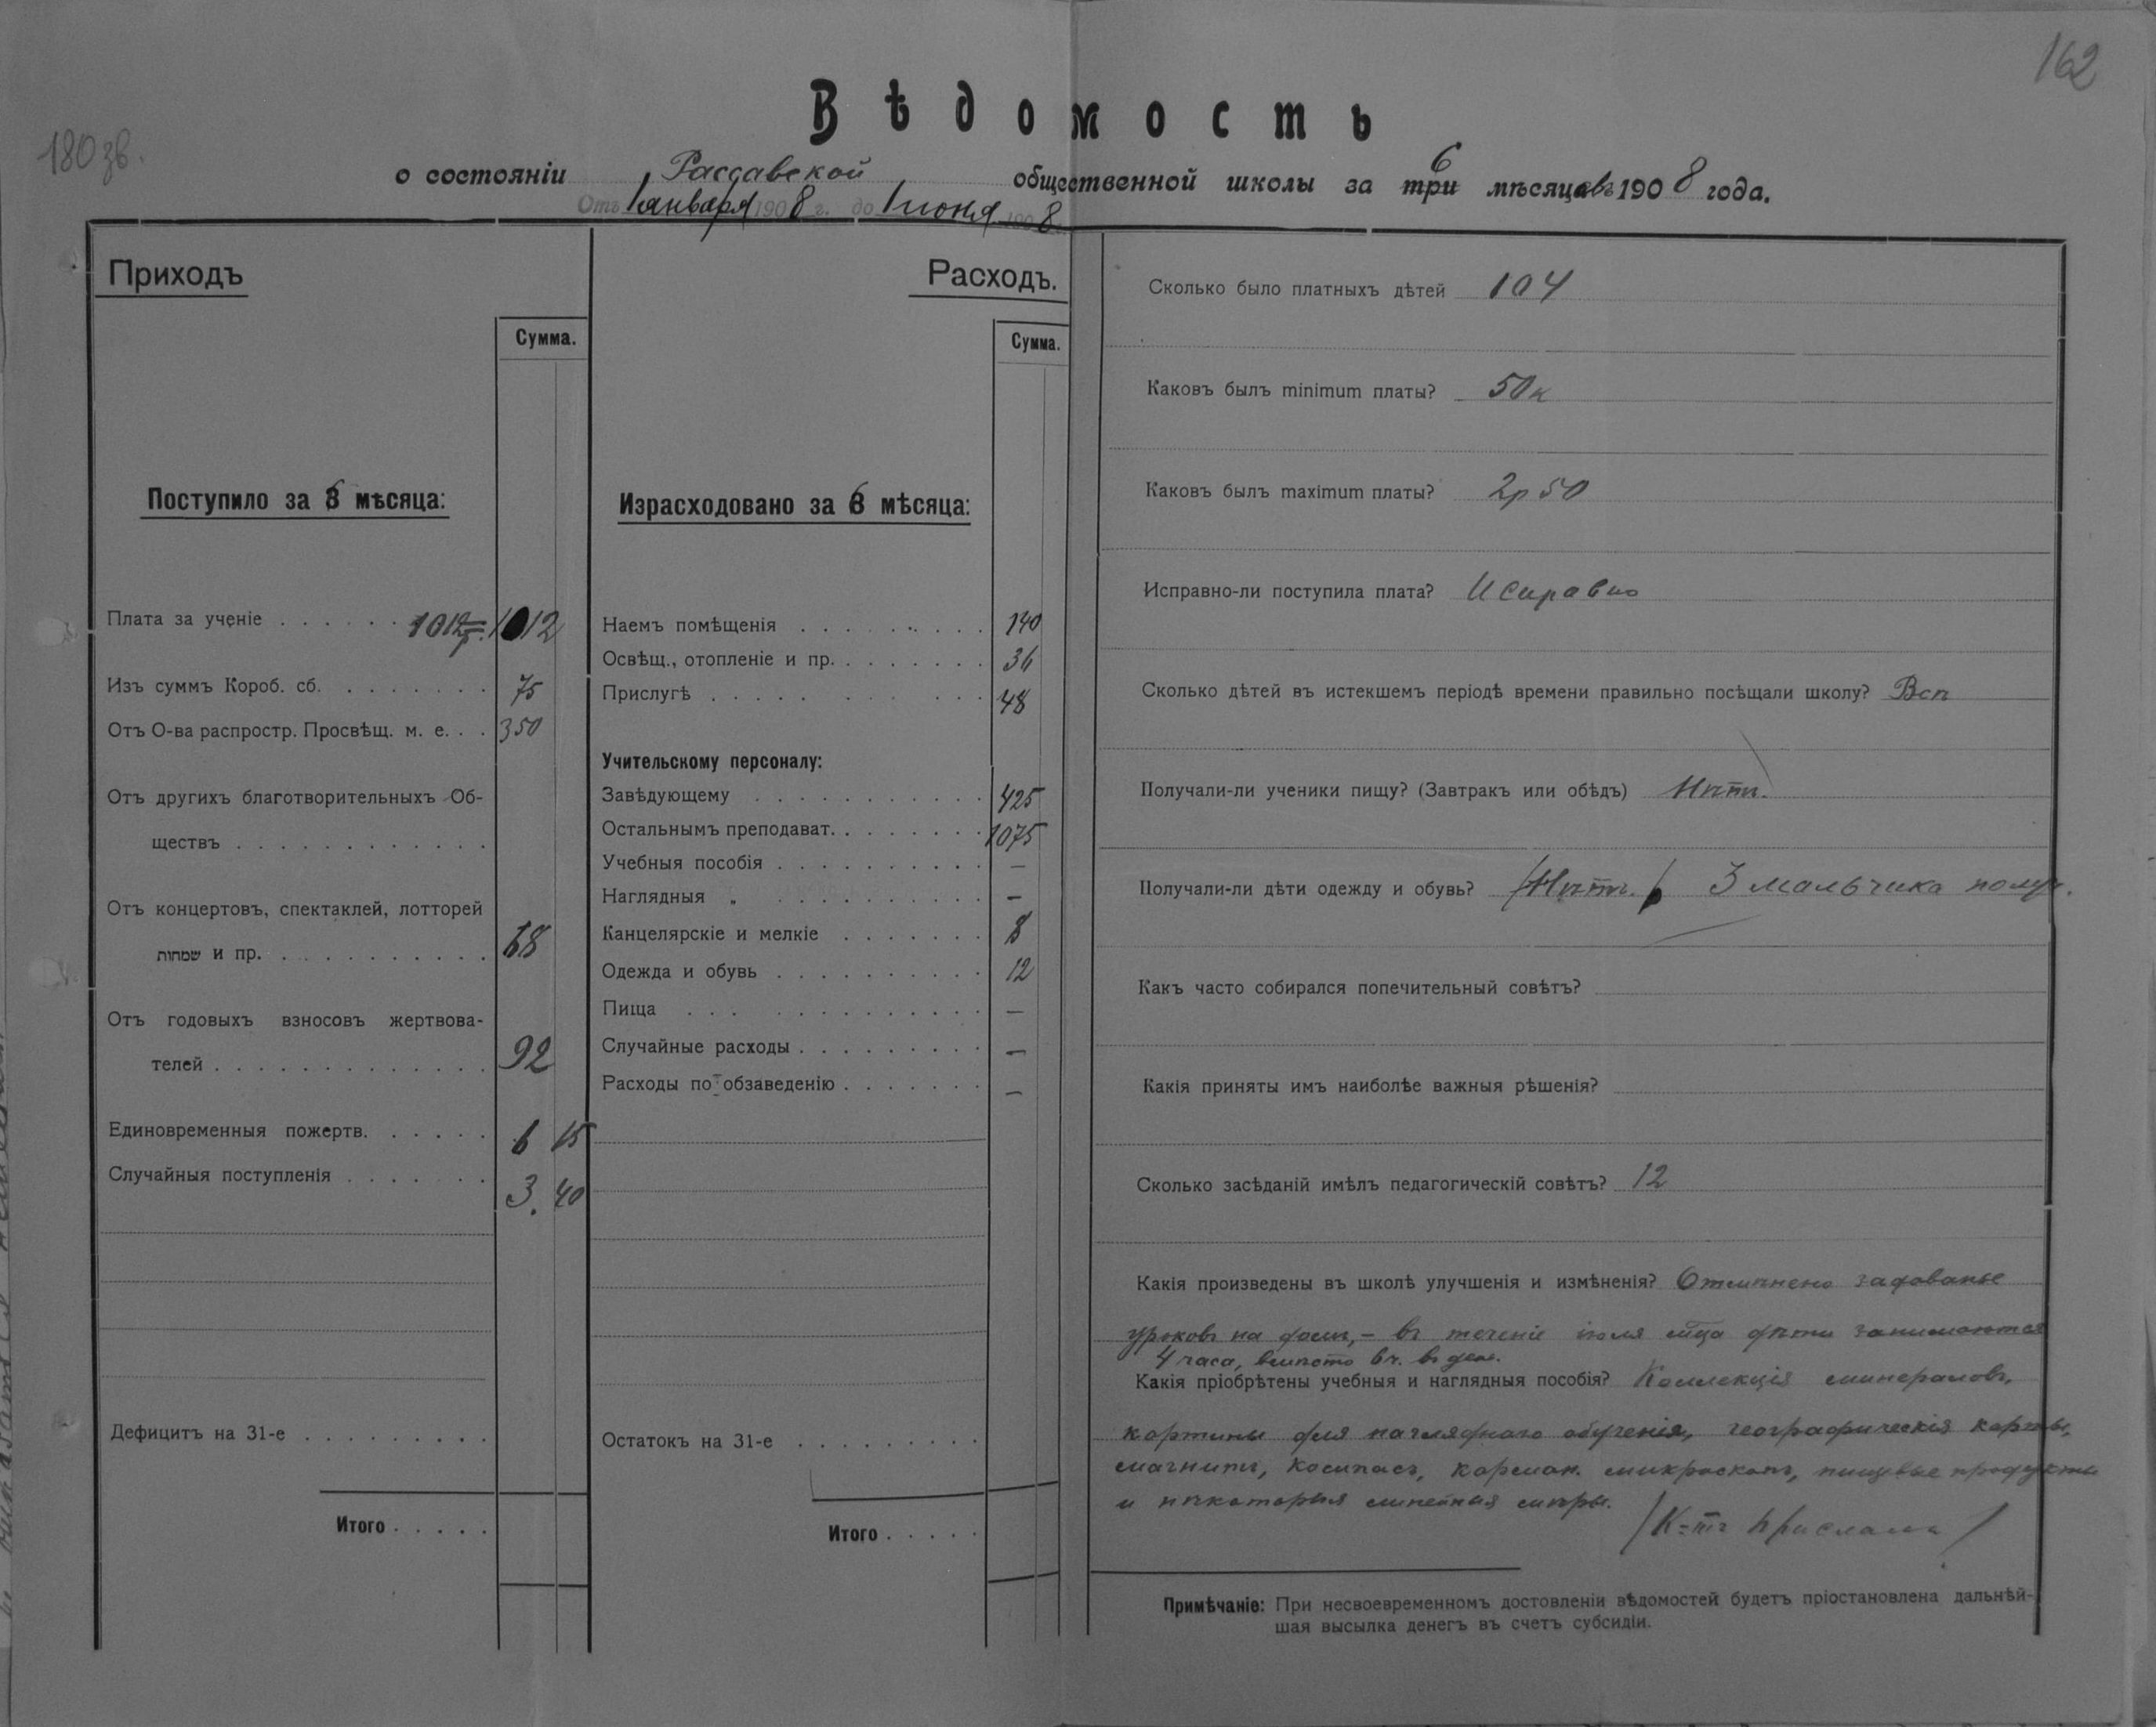 162
180 зв.
Вѣдомость
о состояніи Рассавской общественной школы за три 6 мѣсяцевъ 1908 года.
Отъ 1 января 1908 г. до 1 июня 1908
Приходъ
Сумма.
Поступило за 6 мѣсяца:
Плата за ученіе . . . . . . 1012 р. 1012
Изъ суммъ Короб. сб. . . . . . . . 75
Отъ О-ва распростр. Просвѣщ. м. е. . . 350
Отъ другихъ благотворительныхъ Об-
ществъ . . . . . . . . . . . .
Отъ концертовъ, спектаклей, лотторей
שמחות и пр. . . . . . . . . . . 68
Отъ годовыхъ взносовъ жертвова-
телей . . . . . . . . . . . . . 92
Единовременныя пожертв. . . . . . 6 15
Случайныя поступленія . . . . . . . 3. 40
Дефицитъ на 31-е . . . . . . . . .
Итого . . . . .
Расходъ.
Сумма.
Израсходовано за 6 мѣсяца:
Наемъ помѣщенія . . . . . . . . . 140
Освѣщ., отопленіе и пр. . . . . . . . 36
Прислугѣ . . . . . . . . . . 48
Учительскому персоналу:
Завѣдующему . . . . . . . . . . . 425
Остальнымъ преподават. . . . . . . . 1075
Учебныя пособія . . . . . . . . . . —
Наглядныя „ . . . . . . . . . . —
Канцелярскіе и мелкіе . . . . . . . 8
Одежда и обувь . . . . . . . . . . 12
Пища . . . . . . . . . . . . . —
Случайные расходы . . . . . . . . . —
Расходы по обзаведенію . . . . . . . —
Остатокъ на 31-е . . . . . . . . .
Итого . . . . .
Сколько было платныхъ дѣтей 104
Каковъ былъ minimum платы? 50 к
Каковъ былъ maximum платы? 2р 50
Исправно-ли поступила плата? Исправно
Сколько дѣтей въ истекшемъ періодѣ времени правильно посѣщали школу? Всѣ
Получали-ли ученики пищу? (Завтракъ или обѣдъ) Нѣтъ.
Получали-ли дѣти одежду и обувь? /Нѣтъ./ 3 мальчика получ.
Какъ часто собирался попечительный совѣтъ?
Какія приняты имъ наиболѣе важныя рѣшенія?
Сколько засѣданій имѣлъ педагогическій совѣтъ? 12
Какія произведены въ школѣ улучшенія и измѣненія? Отмѣнено задованье
уроковъ на домъ, – въ теченіе іюля м-ца дѣти занимаются
4 часа, вмѣсто 6 ч. въ день.
Какія пріобрѣтены учебныя и наглядныя пособія? Коллекція минераловъ,
картины для нагляднаго обученія, географическія карты,
магнитъ, компасъ, карман. микроскопъ, пищевые продукты
и нѣкоторыя линейныя мѣры.
/К-тъ прислалъ/
Примѣчаніе: При несвоевременномъ достовленіи вѣдомостей будетъ пріостановлена дальнѣй-
шая высылка денегъ въ счетъ субсидіи.